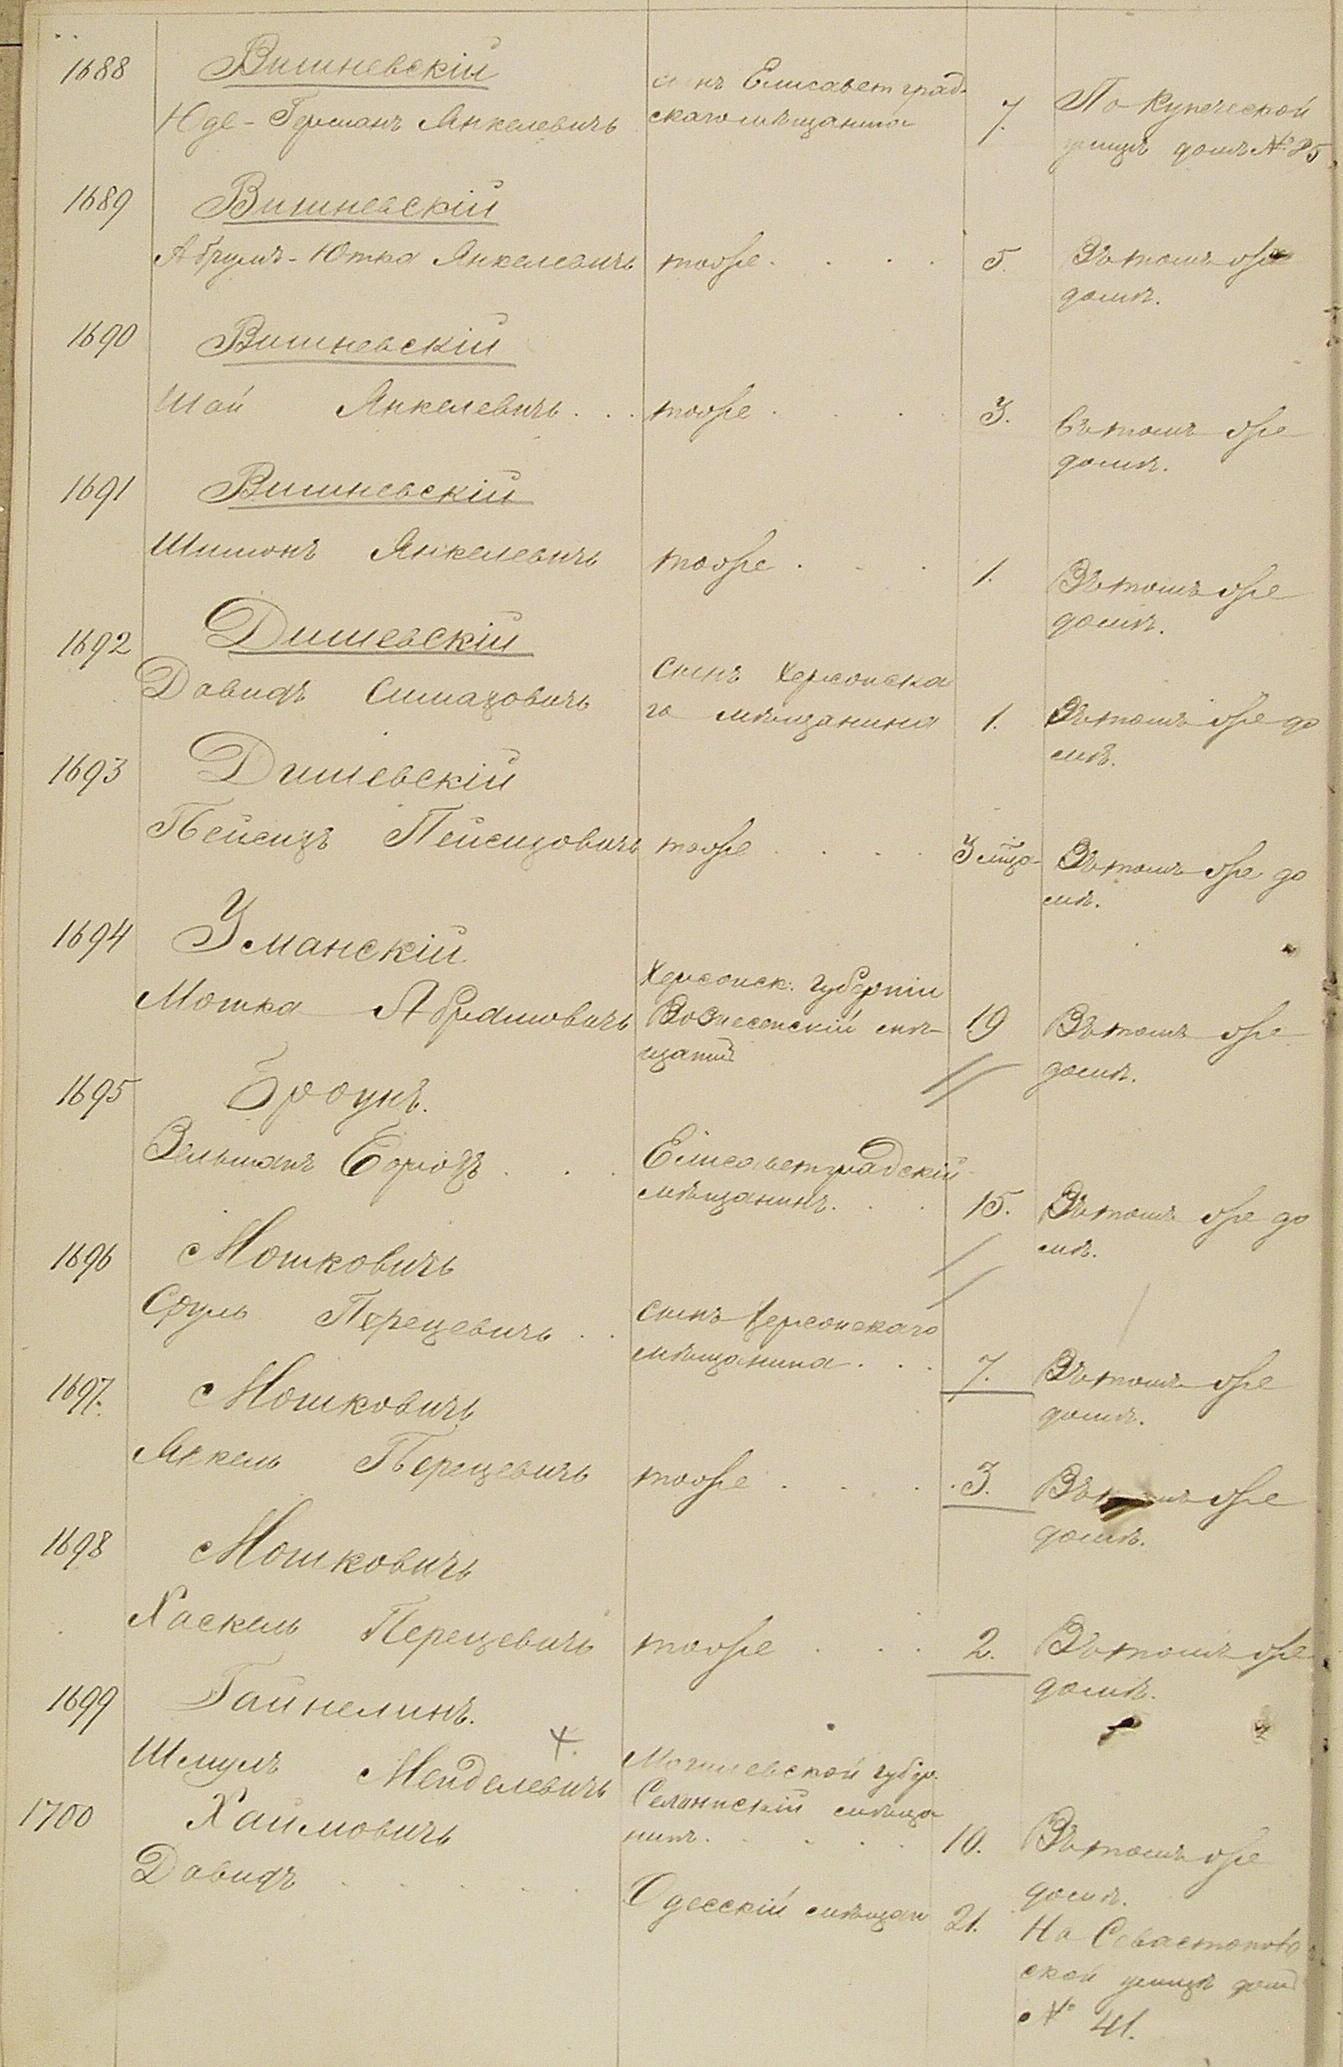 1688 Вишневскій
Юде-Германъ Янкелевичъ
сынъ Елисаветград-
скаго мѣщанина
7.
По Купеческой
улицѣ домъ № 85
1689 Вишневскій
Абрумъ-Ютка Янкелевичъ
тоже
5.
Въ томъ же
домѣ.
1690 Вишневскій
Шай Янкелевичъ
тоже
3.
Въ томъ же
домѣ.
1691 Вишневскій
Шимонъ Янкелевичъ
тоже
1.
Въ томъ же
домѣ.
1692 Дишевскій
Давидъ
сынъ Херсонска
го мѣщанина
1.
Въ томъ же до
мѣ.
1693 Дишевскій
Пейсихъ Пейсиховичъ
тоже
3
Въ томъ же до
мѣ.
1694 Уманскій
Мошка Абрамовичъ
Херсонск. Губерніи
Вознесенскій мѣ-
щанинъ
19
Въ томъ же
домѣ.
1695 Броунъ.
Зельманъ
Елисаветградскій
мѣщанинъ.
15.
Въ томъ же до
мѣ.
1696 Мошковичъ
Сруль Перецевичъ
сынъ Херсонскаго
мѣщанина
7.
Въ томъ же
домѣ.
1697. Мошковичъ
Янкель Перецевичъ
тоже
3.
Въ томъ же
домѣ.
1698 Мошковичъ
Хаскель Перецевичъ
тоже
2.
Въ томъ же
домѣ.
1699 Гайнелинъ.
Шмулъ Менделевичъ
Могилевской губер.
мѣща
нинъ.
10.
Въ томъ же
домѣ.
1700 Хаимовичъ
Давидъ
Одесскій мѣщан
21.
На Севастополь
ской улицѣ домъ
№ 41.